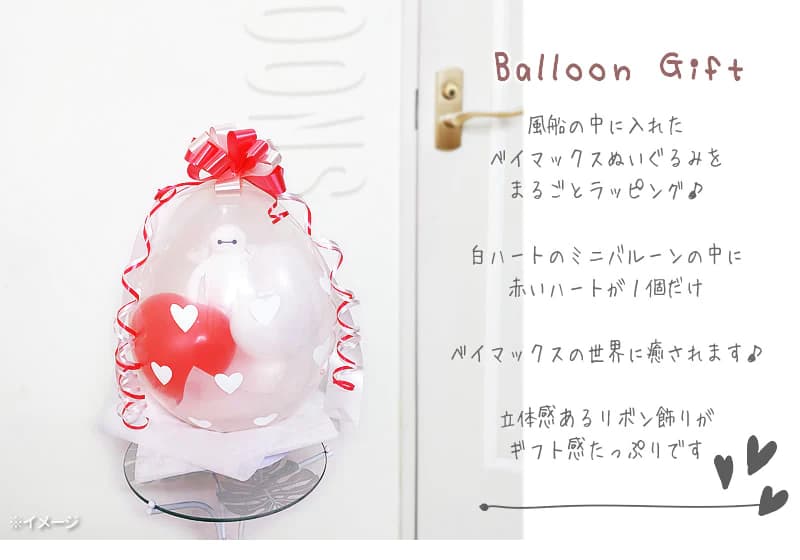 SNOO
Balloon Gift
風船の中に入れた
ベイマックスぬいぐるみを
まるごとラッピング♪
白ハートのミニバルーンの中に
赤いハートが1個だけ
ベイマックスの世界に癒されます♪
立体感あるリボン飾りが
ギフト感たっぷりです
※イメージ